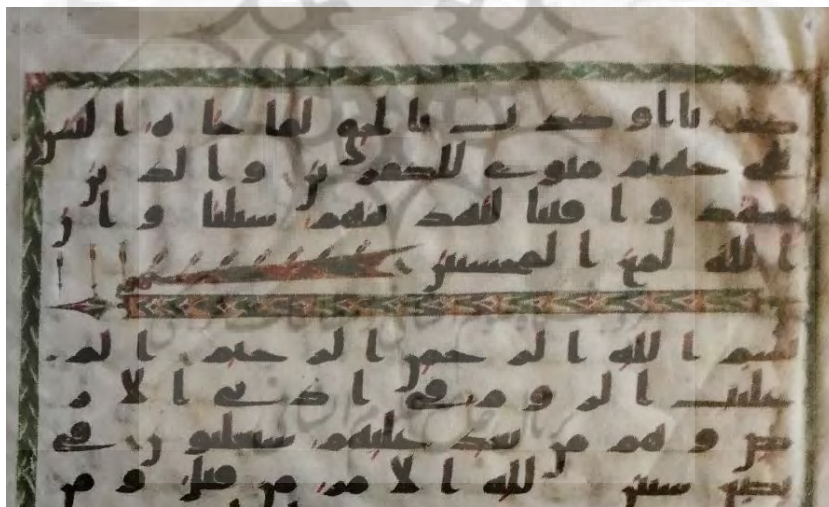 كذبا او كذب بالحق لما جاه اليس
في جهنم مثوى للكفرين والذين
جهدوا فينا لنهدينهم سبلنا وان
الله لمع المحسنين
بسم الله الرحمن الرحيم الم
غلبت الروم في ادنى الار
ض وهم من بعد غلبهم سيغلبون في
بضع سنين لله الامر من قبل و م